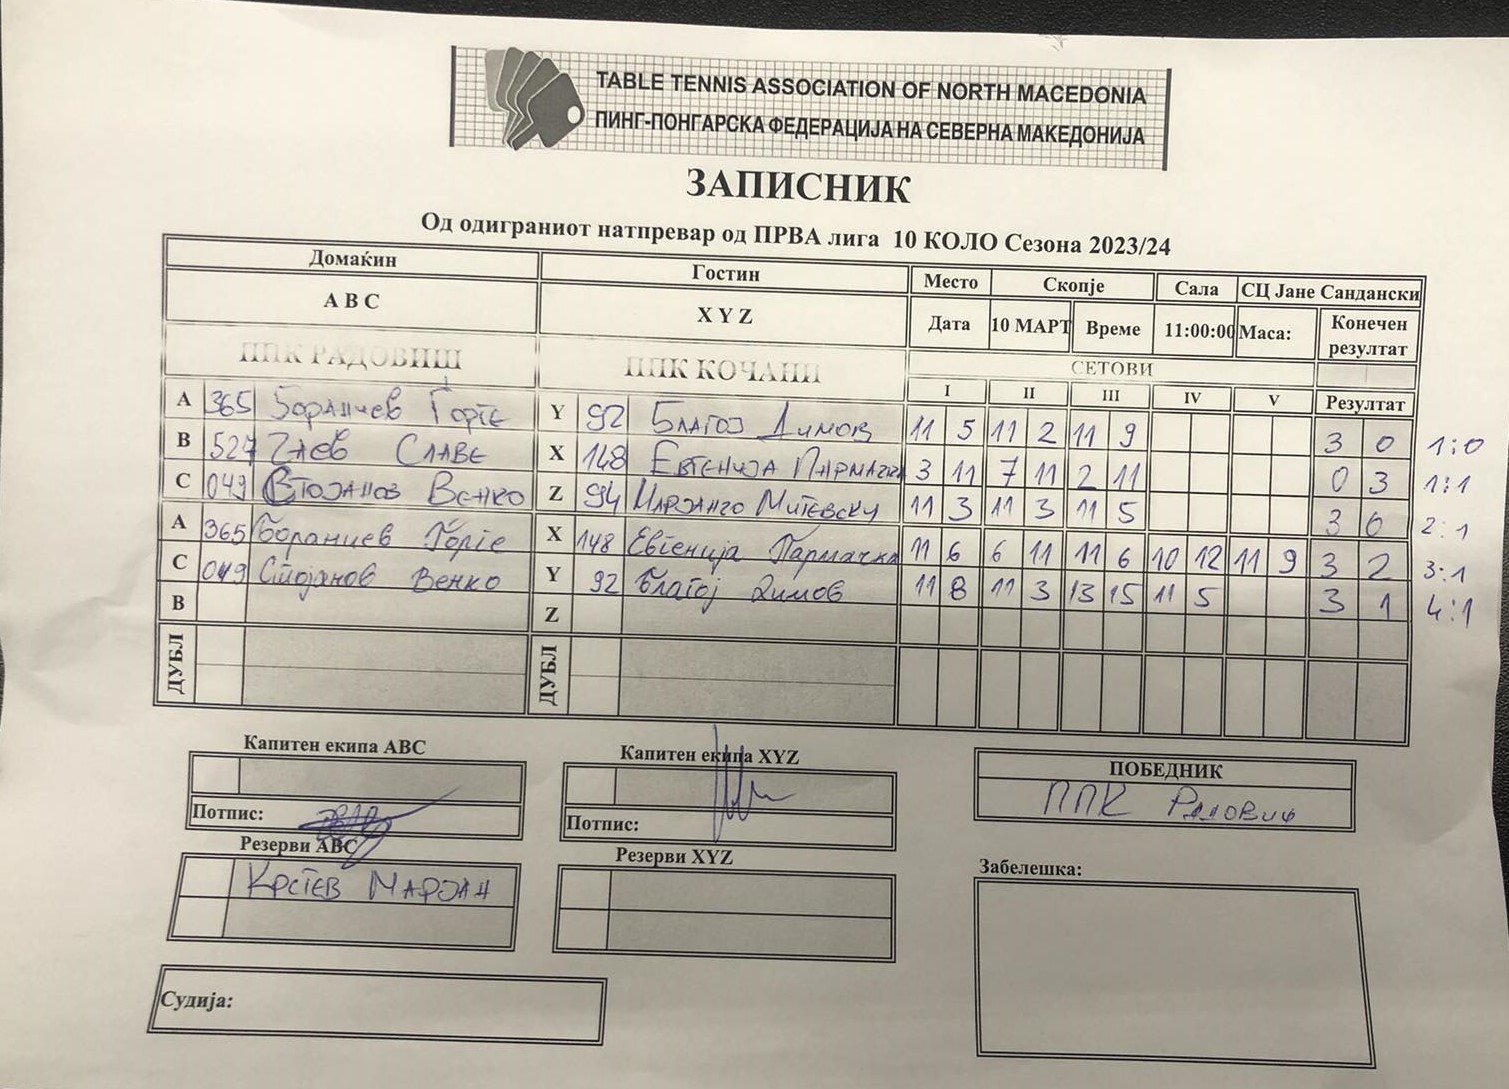 TABLE TENNIS ASSOCIATION OF NORTH MACEDONIA
ПИНГ-ПОНГАРСКА ФЕДЕРАЦИЈА НА СЕВЕРНА МАКЕДОНИЈА
ЗАПИСНИК
Од одиграниот натпревар од ПРВА лига 10 КОЛО Сезона 2023/24
Домаќин Гостин Место Скопје Сала СЦ Јане Сандански
A B C X Y Z Дата 10 МАРТ Време 11:00:00 Маса: Конечен резултат
ППК РАДОВИШ ППК КОЧАНИ СЕТОВИ
I II III IV V Резултат
A 365 Боранчев Ѓорѓе Y 92 Благој Димов 11 5 11 2 11 9 3 0 1:0
B 527 Славе X 148 Евгенија Пармачка 3 11 7 11 2 11 0 3 1:1
C 049 Стојанов Венко Z 94 Митевски 11 3 11 3 11 5 3 0 2:1
A 365 Боранчев Ѓорѓе X 148 Евгенија Пармачка 11 6 6 11 11 6 10 12 11 9 3 2 3:1
C 049 Стојанов Венко Y 92 Благој Димов 11 8 11 3 13 15 11 5 3 1 4:1
B Z
ДУБЛ ДУБЛ
Капитен екипа ABC Капитен екипа XYZ ПОБЕДНИК
ППК Радовиш
Потпис: Потпис:
Резерви ABC Резерви XYZ Забелешка:
Крстев Марјан
Судија: